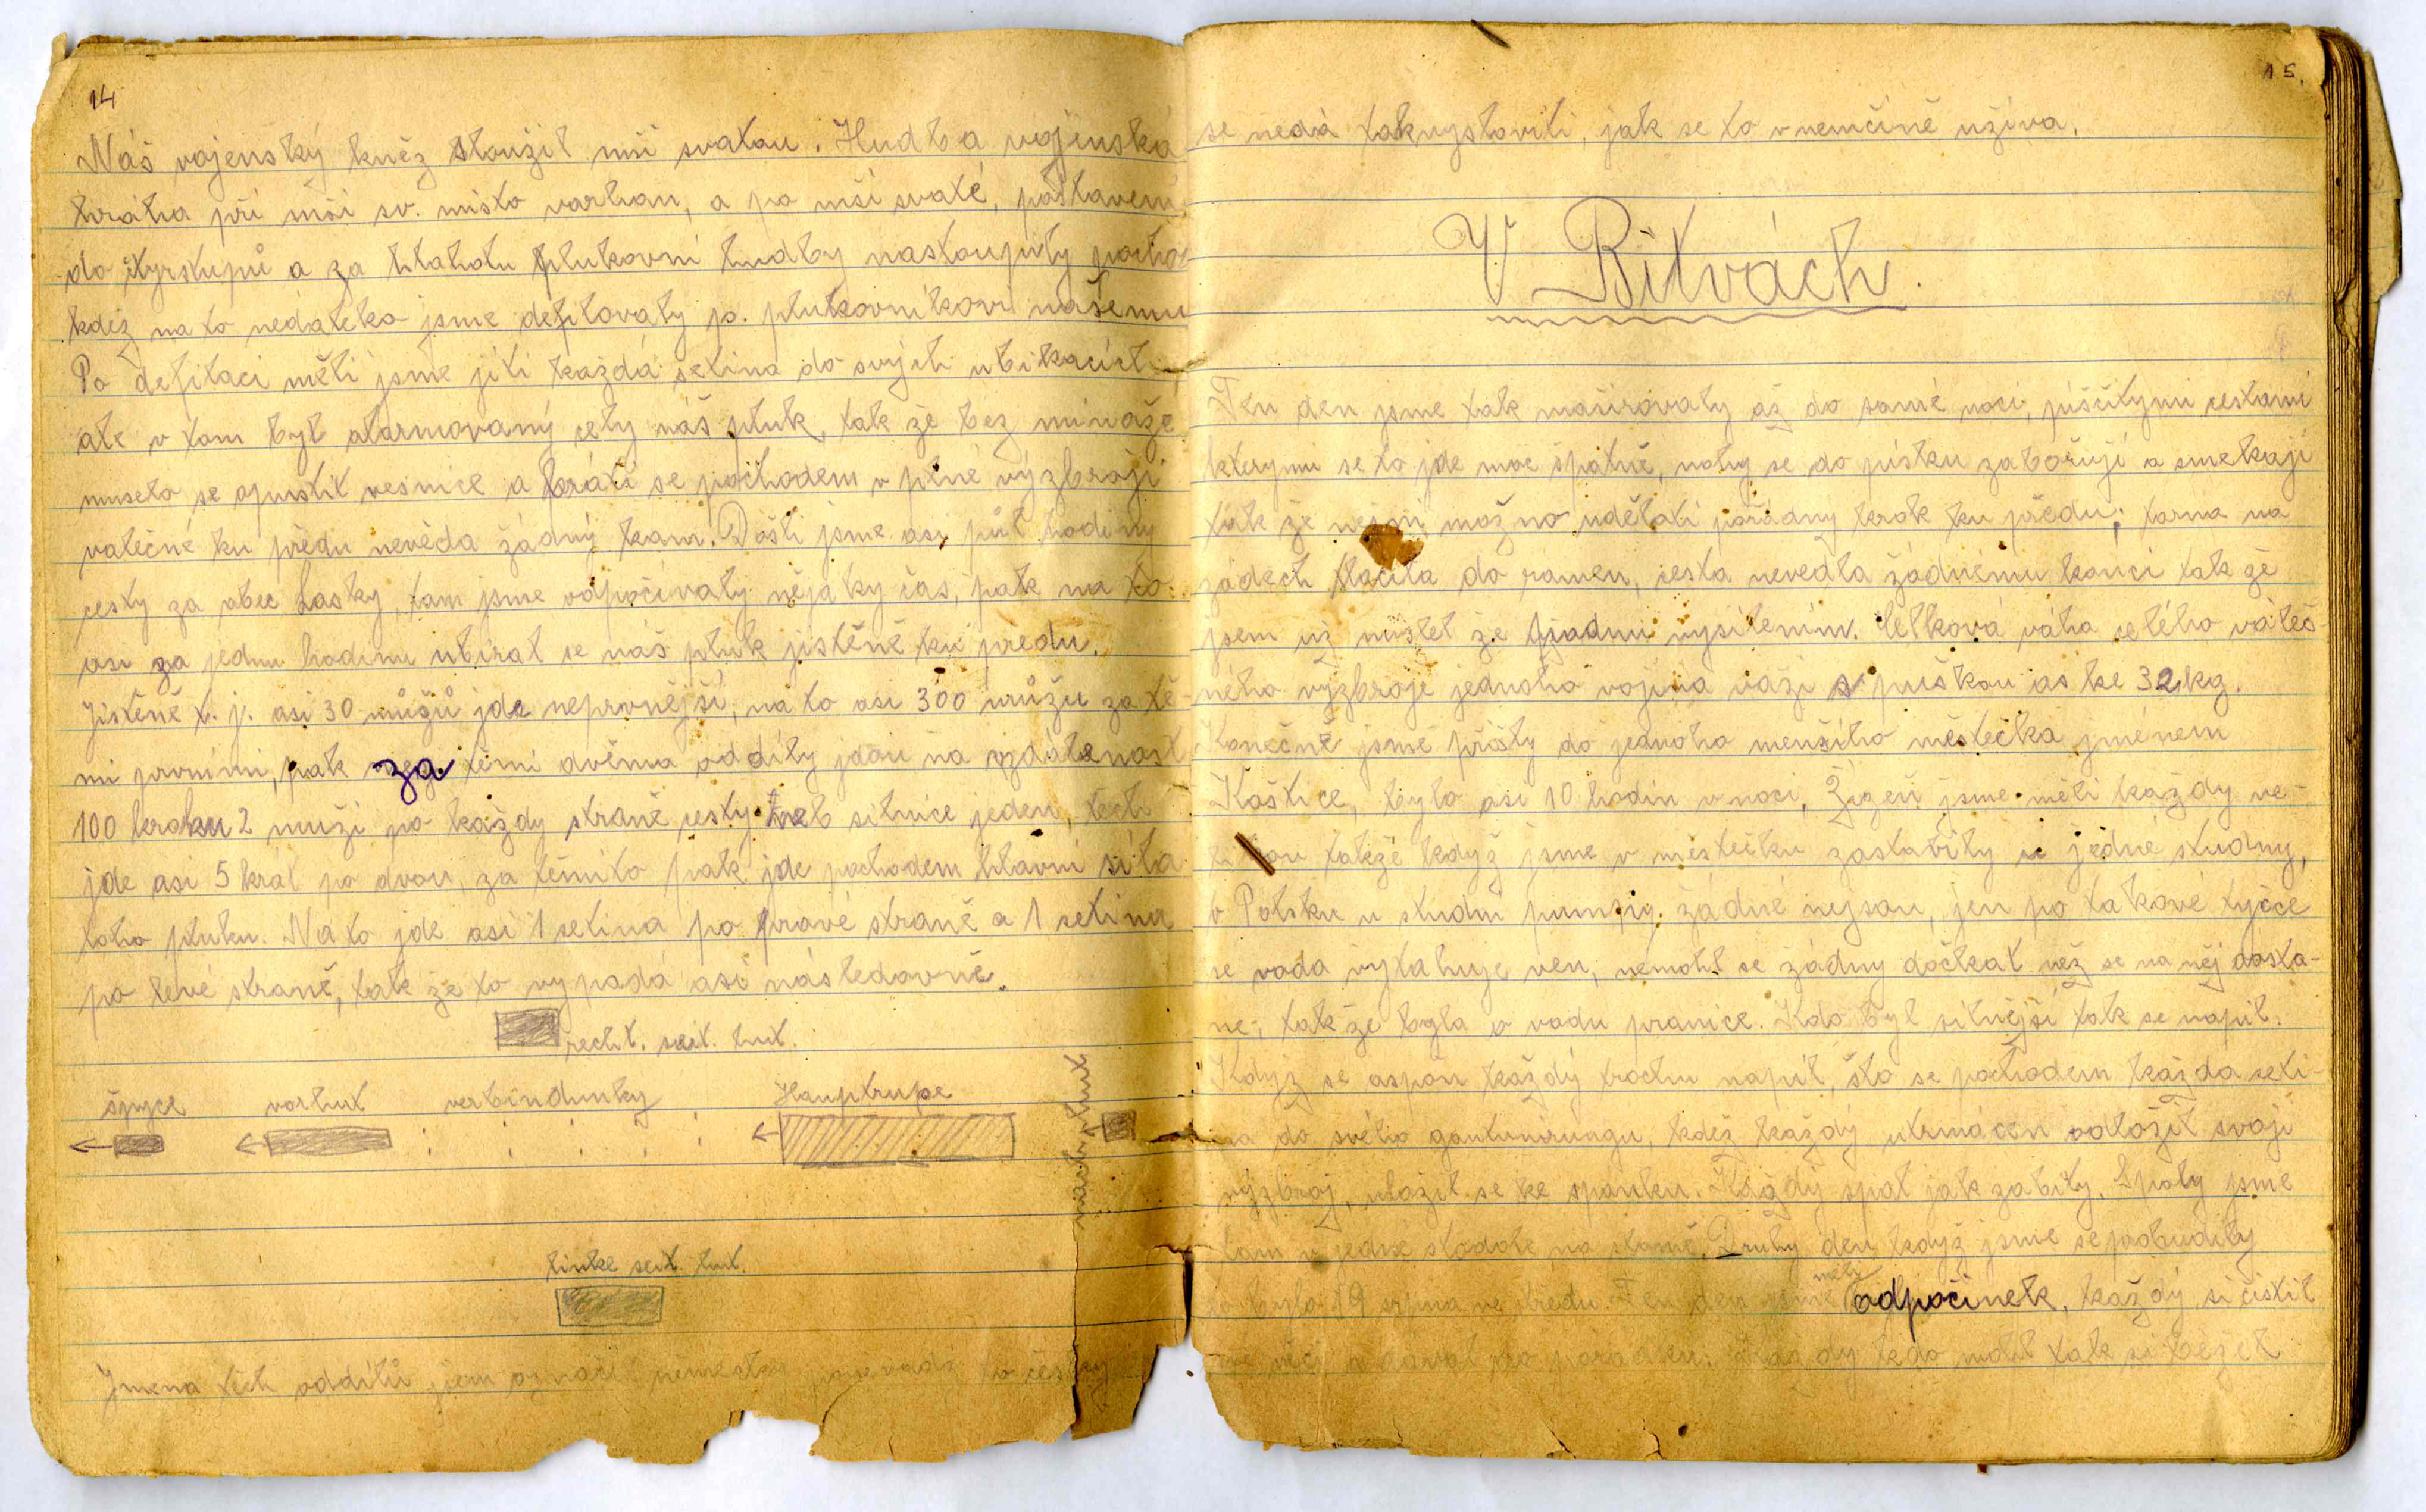 14
Náš vojenský kněz sloužil mši svatou. Hudba vojenská
hrála při mši sv. místo varhan, a po mši svaté, postaveni
do čtyrstupů a za hlaholu plukovní hudby nastoupily pochod
kdež na to nedaleko jsme defilovaly p. plukovníkovi našemu
Po defilaci měli jsme jíti každá setina do svých ubikacích
ale v tom byl alarmovaný celý náš pluk, tak že bez mináže
muselo se opustit vesnice a bráti se pochodem v plné výzbroji
válečné ku předu nevěda žádný kam. Došli jsme asi půl hodiny
cesty za obec Lasky, tam jsme odpočívaly nějaký čas, pak na to
asi za jednu hodinu ubíral se náš pluk jistěně ku předu.
Jistěně t. j. asi 30 můžů jde neprvnější, na to asi 300 můžu za tě-
mi prvními, pak za těmi dvěma oddíly jdou na vzdálenost
100 kroku 2 muži po každy straně cesty neb silnice jeden, těch
jde asi 5 krát po dvou, za těmito pak jde pochodem hlavní síla
toho pluku. Na to jde asi 1 setina po pravé straně a 1 setina
po levé straně, tak že to vypadá asi následovně.
recht. seit. hut.
špyce vorhut verbindunky Hauptrupe
nachhut
linke seit. hut.
Jmena těch oddílů jsem označil německy poněvadž to česky
15.
se nedá takvysloviti, jak se to v nemčině užíva.
V Bitvách.
Ten den jsme tak mašírovaly až do samé noci, píščitými cestami
kterymi se to jde moc špatně, nohy se do písku zabořují a smekají
tak že není možno udělati pořádny krok ku předu; torna na
zádech tlačila do ramen, cesta nevedla žádnému konci tak že
jsem už myslel že padnu vysílením. Celková váha celého váleč-
ného výzbroje jednoho vojína váži s puškou as ke 32 kg.
Konečně jsme přišly do jednoho menšího městečka jménem
Koštice, bylo asi 10 hodin v noci, Žízeň jsme měli každy ve-
likou takže když jsme v městečku zastavily u jedné studny,
v Polsku u studní pumpy žádné nejsou, jen po takové tyčce
se voda vytahuje ven, nemohl se žádny dočkat než se na něj dosta-
ne, tak že byla o vodu pranice. Kdo byl silnější tak se napil.
Když se aspon každý trochu napil, šlo se pochodem každa seti-
na do svého gantonírungu, kdež každý utrmácen odložil svojí
výzbroj, uložil se ke spánku. Každý spal jak zabitý. Spaly jsme
tam v jedné stodole na slamě. Druhy den když jsme se probudily
to bylo 19 srpna ve středu. Ten den jsme měly odpočinek, každý si čistil
své věci a dával do pořádku. Každy kdo mohl tak si běžel